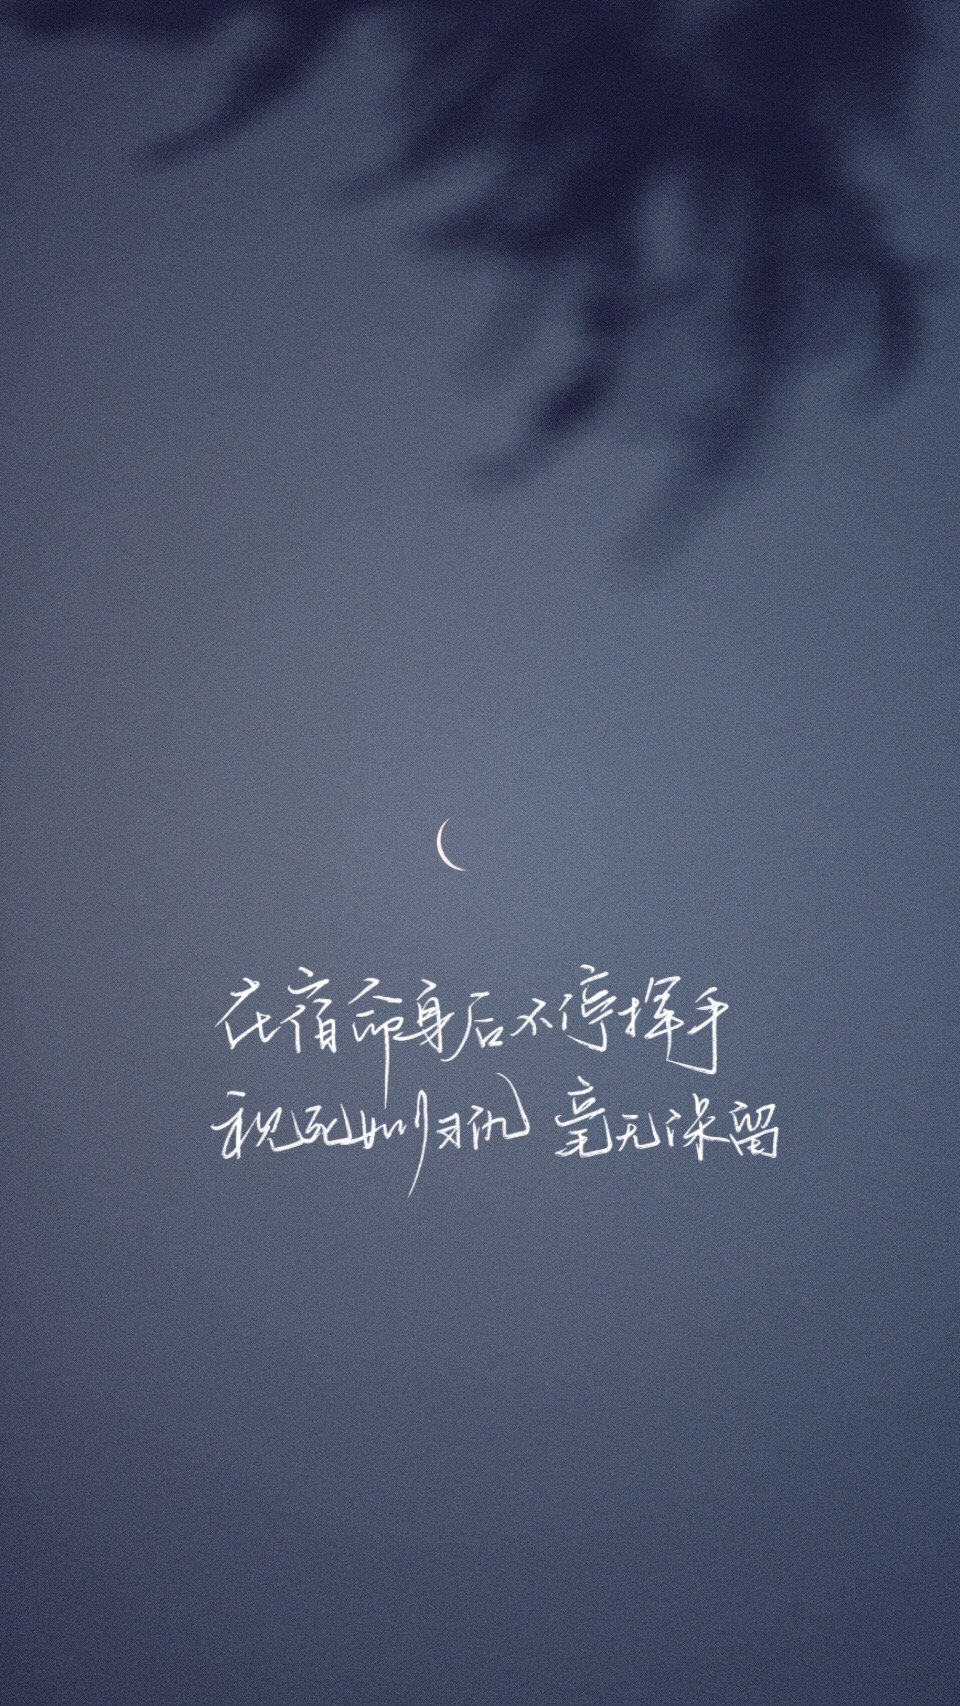 在宿命身后不停挥手
视死如归仇 毫无保留